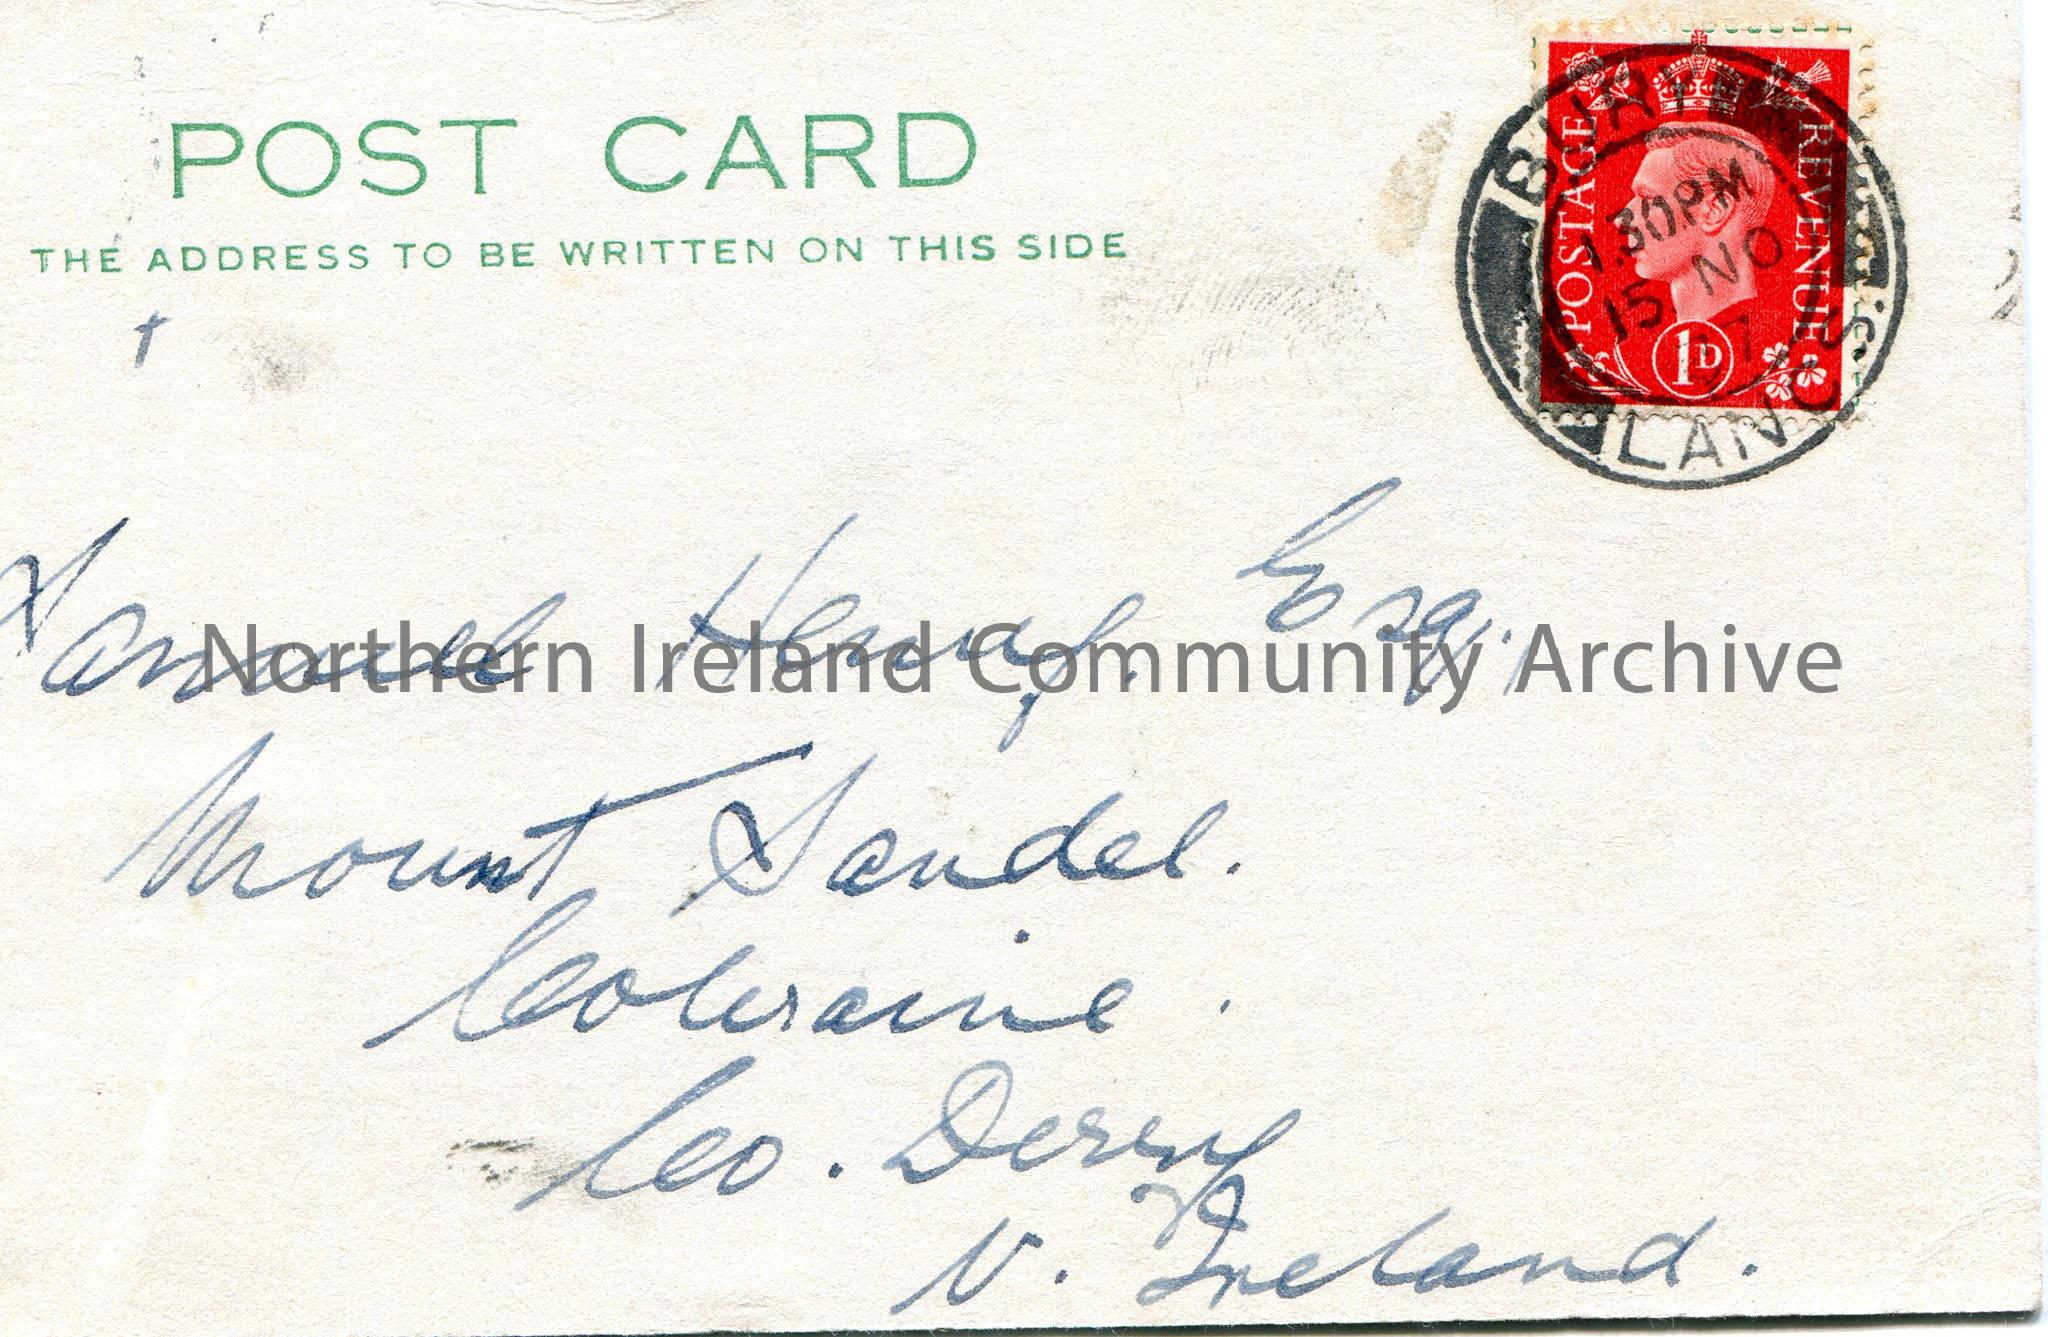 POST CARD
THE ADDRESS TO BE WRITTEN ON THIS SIDE
POSTAGE
REVENUE
1D
1.30PM
15 NO
LANCS.
Samuel Henry. Esq.,
Northern Ireland Community Archive
Mount Sandel.
Coleraine.
Co. Derry
N. Ireland.